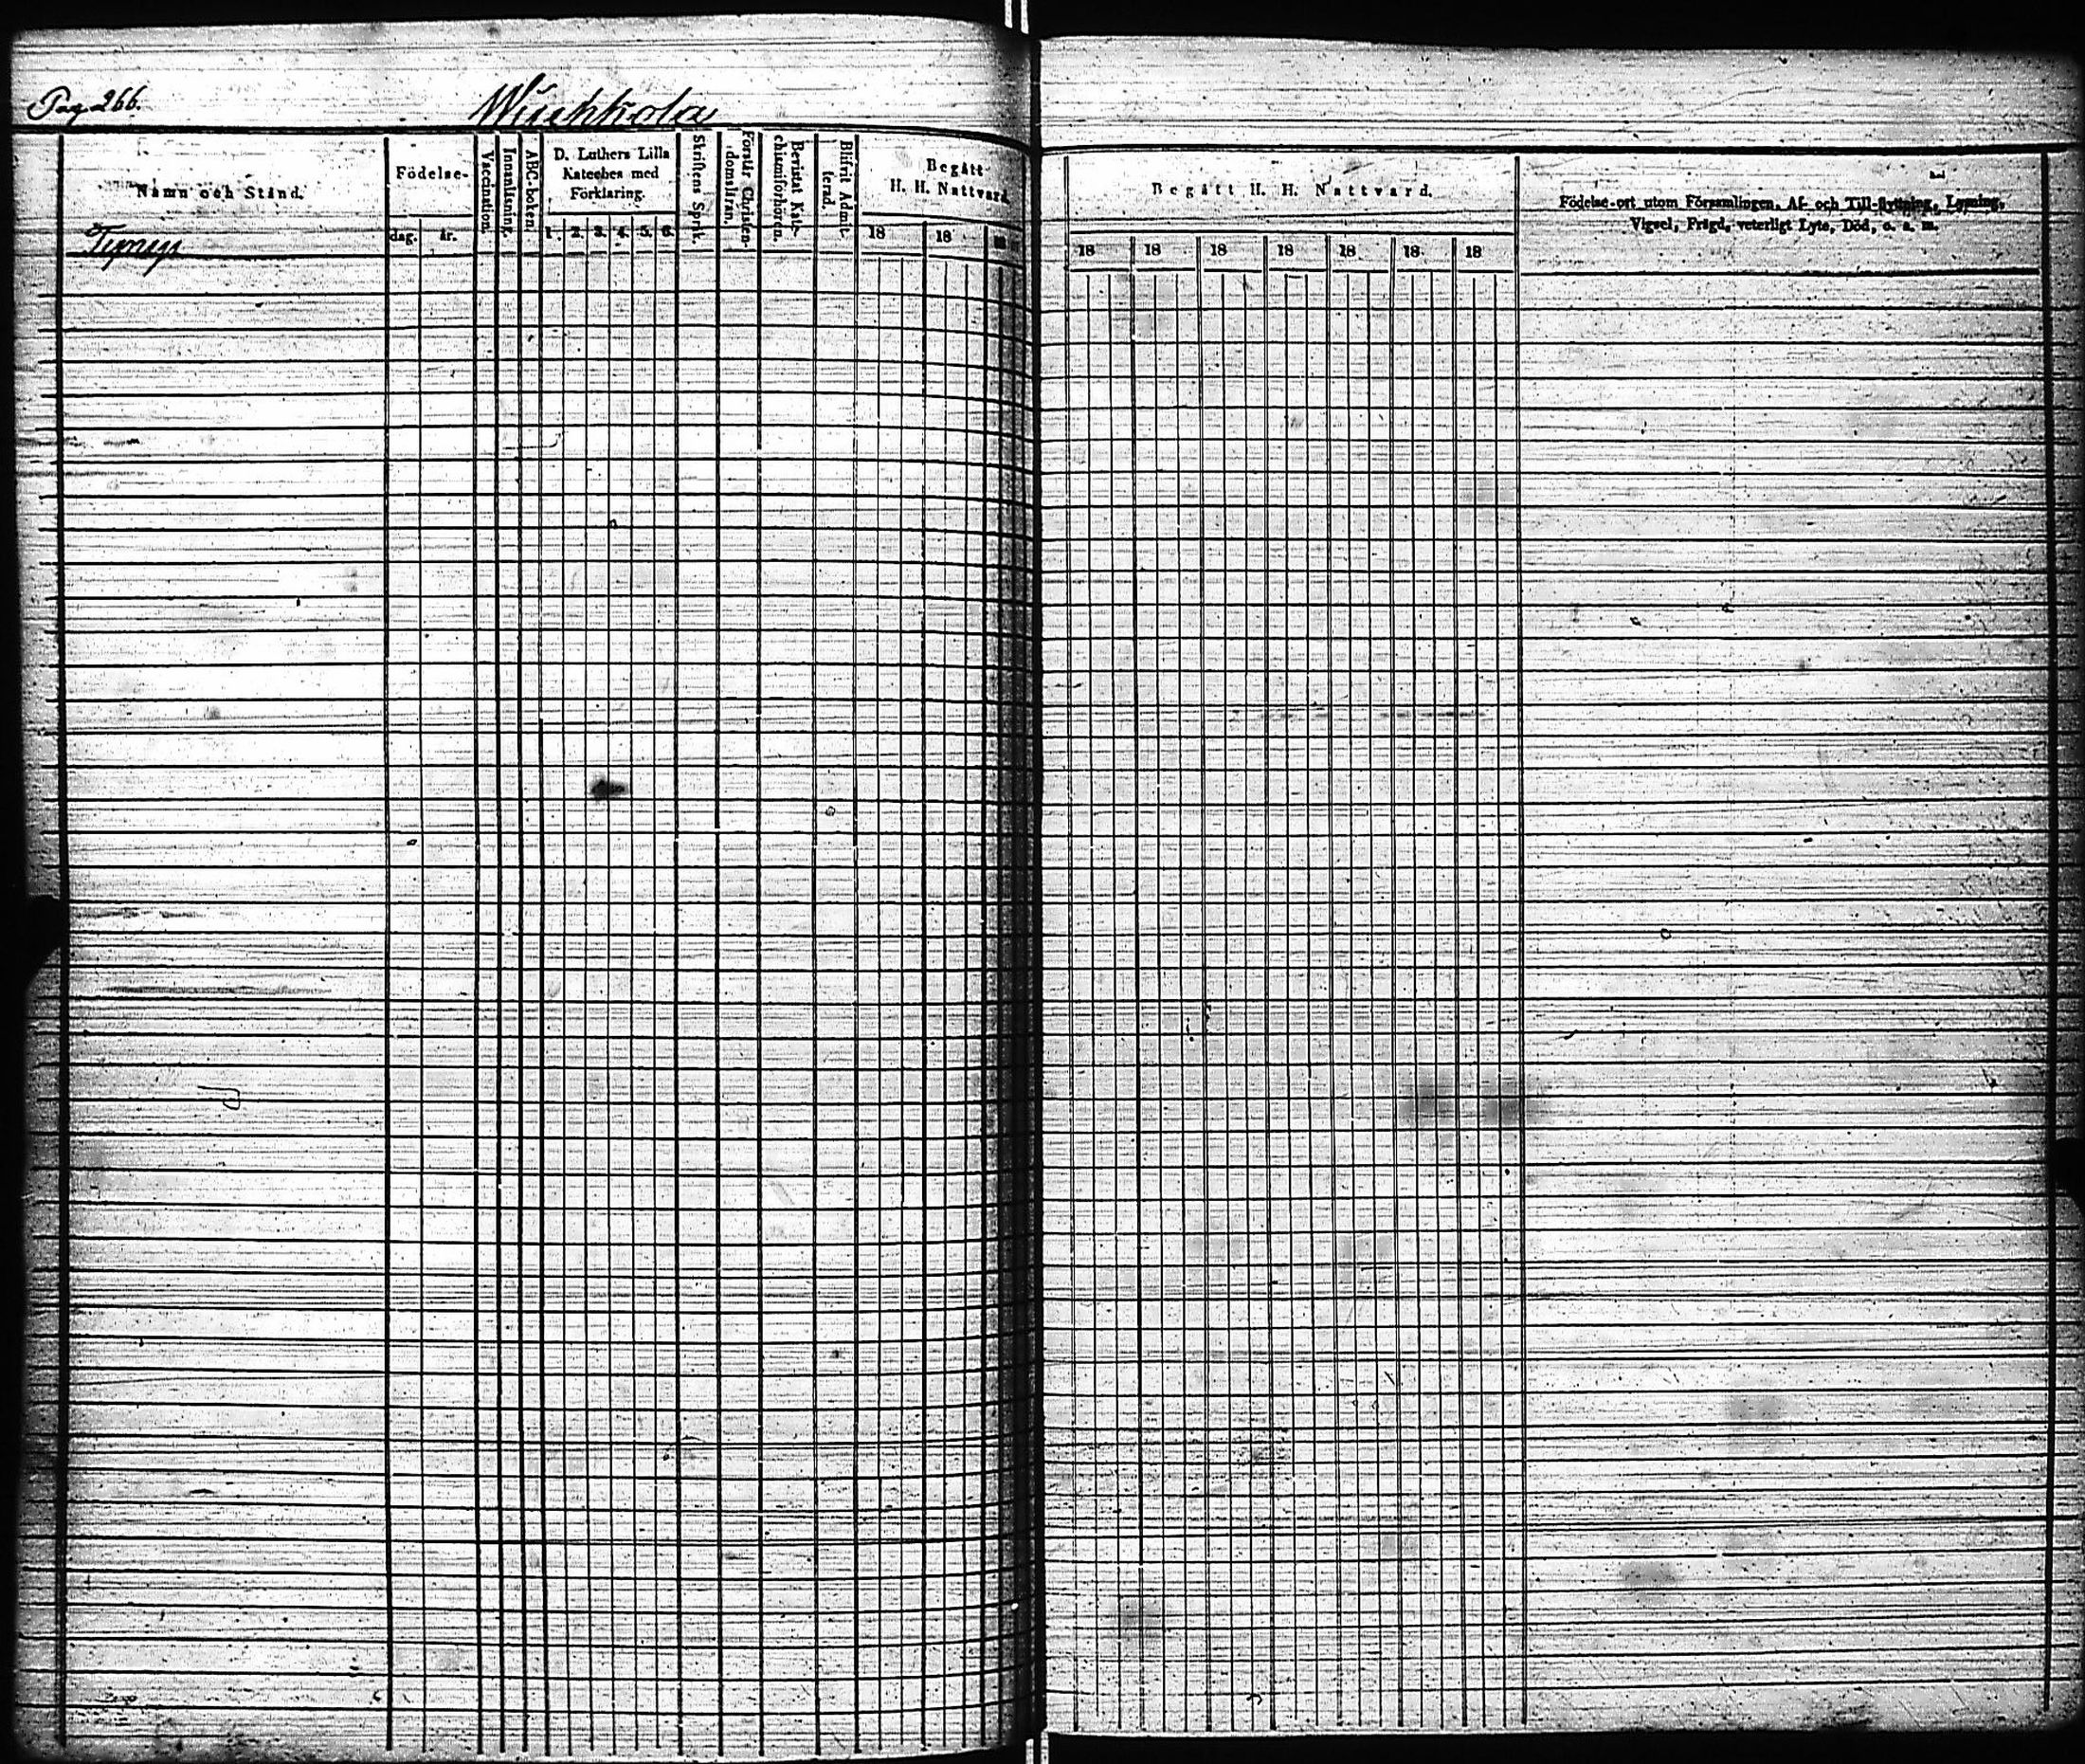 Pag. 266.
Wuohkola
Namn och Stånd.
Födelse-
dag.
år.
Vaccination.
Innanläsning.
ABC-boken.
D. Luthers Lilla
Kateches med
Förklaring.
1. 2. 3. 4. 5. 6.
Skriftens Språk.
Förstår Christen-
domsläran.
Bevistat Kate-
chismiförhören.
Blifvit Admit-
terad.
Begått
H. H. Nattvard.
18 18 18
Begått H. H. Nattvard.
18 18 18 18 18 18 18
Födelse-ort utom Församlingen, Af- och Till-flyttning, Lysning,
Vigsel, Frägd, veterligt Lyte, Död, o. s. m.